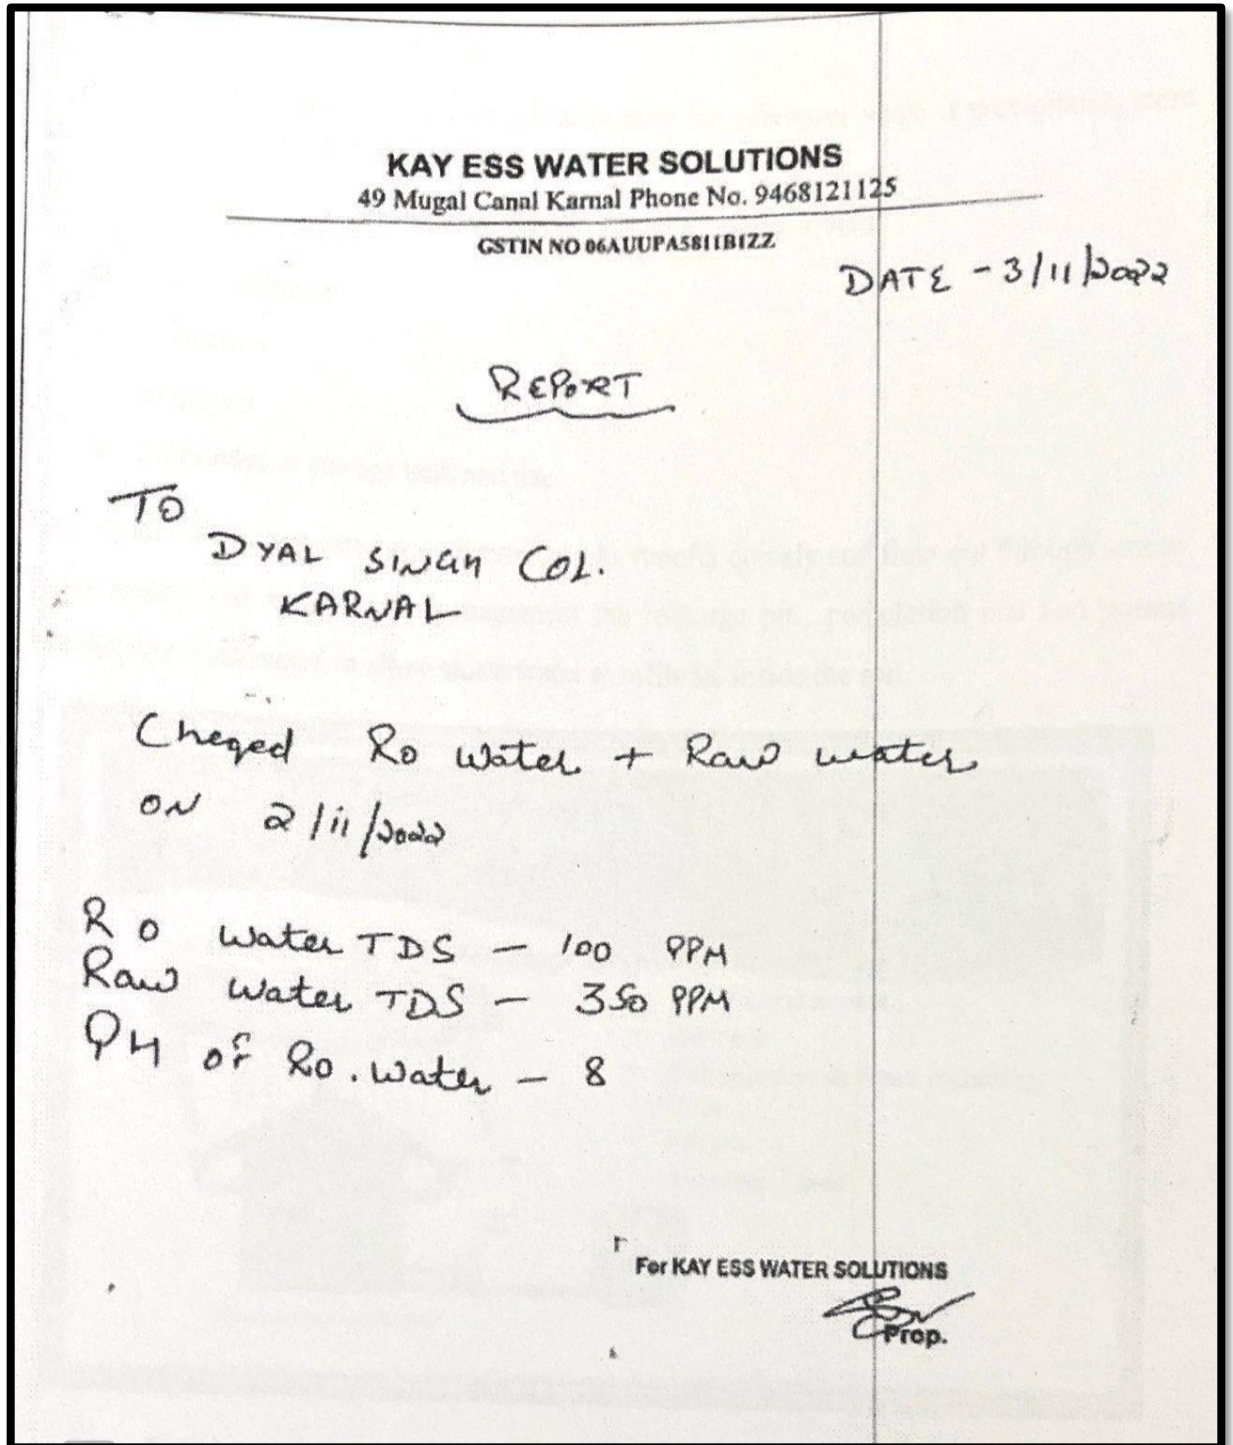 KAY ESS WATER SOLUTIONS
49 Mugal Canal Karnal Phone No. 9468121125
GSTIN NO 06AUUPA5811B1ZZ
DATE - 3/11/2022
REPORT
TO
DYAL SINGH COL.
KARNAL
Cheqed Ro water + Raw water
ON 2/11/2022
RO water TDS - 100 PPM
Raw water TDS - 350 PPM
PH of Ro. water - 8
For KAY ESS WATER SOLUTIONS
Prop.